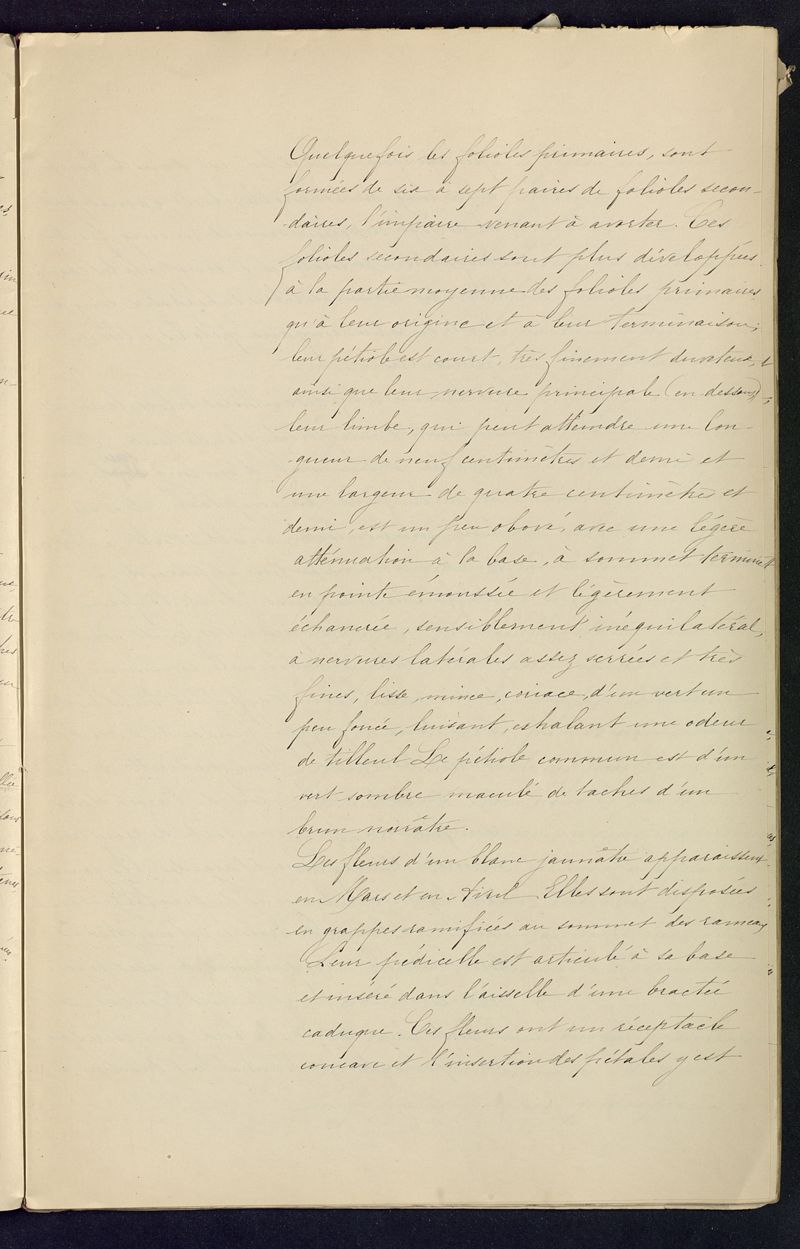 Quelquefois les folioles primaires, sont
formées de six à sept paires de folioles secon-
daires, l'impaire venant à avorter. Ces
folioles secondaires sont plus développées
à la partie moyenne des folioles primaires
qu'à leur origine et à leur terminaison;
leur pétiole est court, très finement duveteux,
ainsi que leur nervure principale (en dessous)
leur limbe, qui peut atteindre une lon-
gueur de neuf centimètres et demi et
une largeur de quatre centimètres et
demi, est un peu obové, avec une légère
atténuation à la base, à sommet terminé
en pointe émoussée et légèrement
échancrée, sensiblement inéquilatéral,
à nervures latérales assez serrées et très
fines, lisse, mince, coriace, d'un vert un
peu foncé, luisant, exhalant une odeur
de tilleul Le pétiole commun est d'un
vert sombre maculé de taches d'un
brun noirâtre.
Les fleurs d'un blanc jaunâtre apparaissent
en Mars et en Avril Elles sont disposées
en grappes ramifiées au sommet des rameaux
Leur pédicelle est articulé à sa base
et inséré dans l'aisselle d'une bractée
caduque. Ces fleurs ont un réceptacle
concave et l'insertion des pétales y est